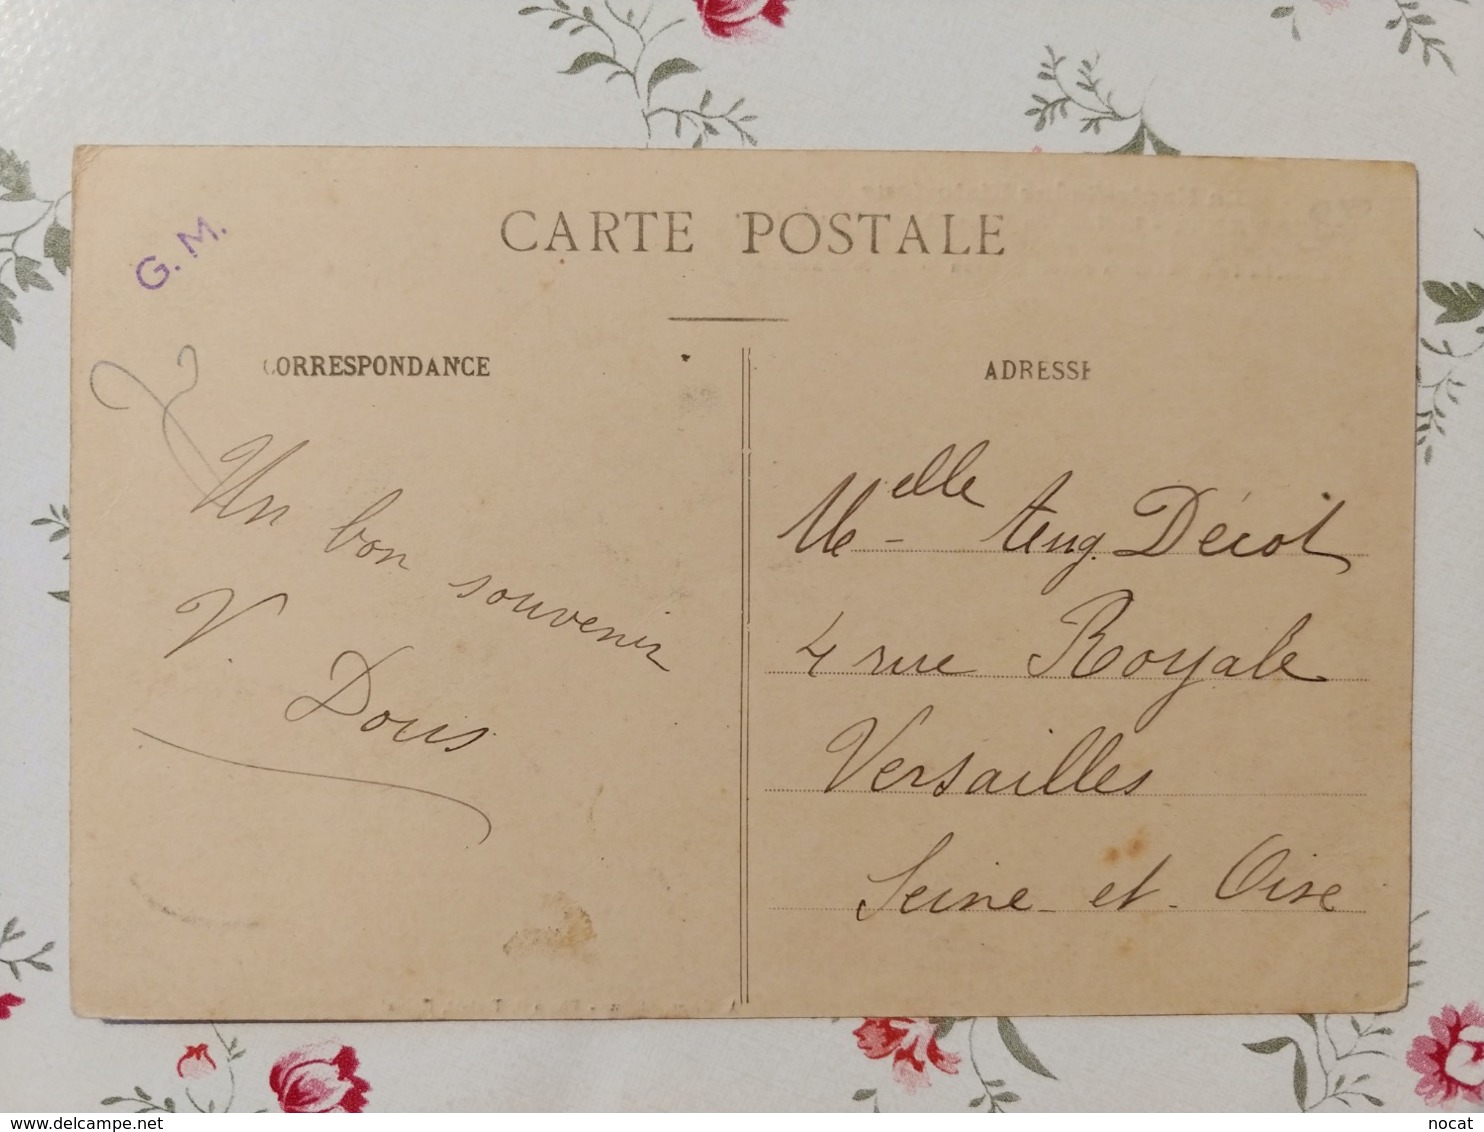 G. M.
CARTE POSTALE
CORRESPONDANCE
Un bon souvenir
V. Doris
ADRESSE
Melle Aug. Décot
4 rue Royale
Versailles
Seine - et - Oise
delcampe.net
nocat